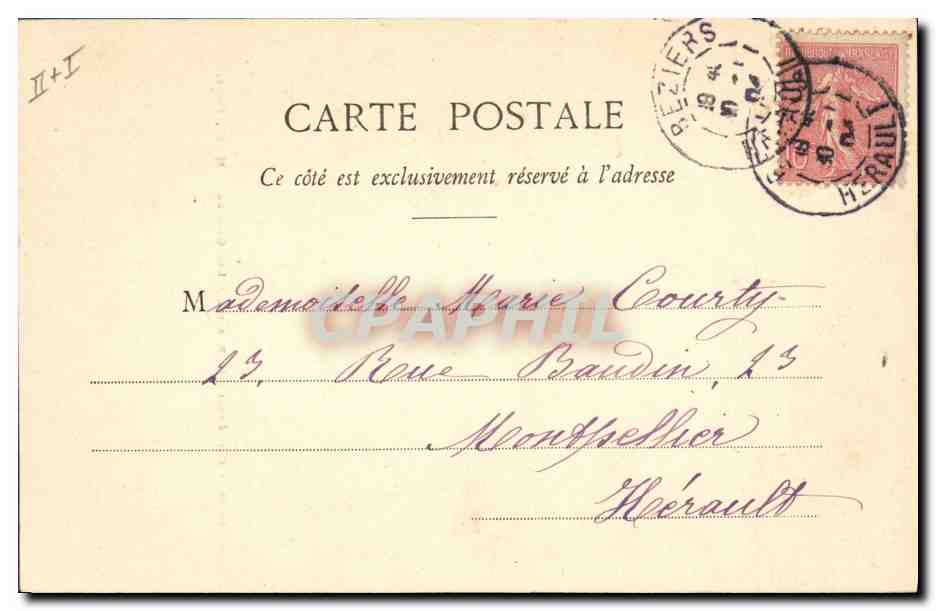 II+I
BEZIERS
HERAULT
CARTE POSTALE
Ce côté est exclusivement réservé à l'adresse
Mademoiselle Marie Courty
CPAPHIL
23, Rue Baudin, 23
Montpellier
Hérault